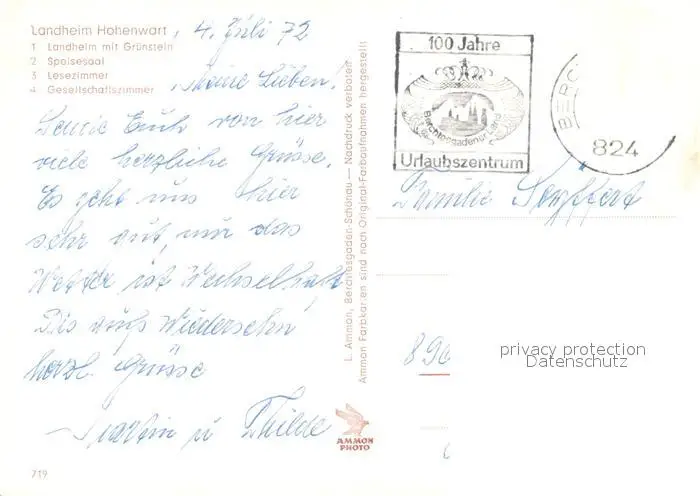 Landheim Hohenwart
1 Landheim mit Grünstein
2 Speisesaal
3 Lesezimmer
4 Gesellschaftszimmer
, 4. Juli 72
Meine Lieben!
Sende Euch von hier
viele herzliche Grüsse.
Es geht uns hier
sehr gut, nur das
Wetter ist Wechselhaft
Bis aufs Wiedersehn
herzl. Grüsse
Martin u Thilde
719
L. Ammon, Berchtesgaden-Schönau — Nachdruck verboten
Ammon Farbkarten sind nach Original-Farbaufnahmen hergestellt
AMMON
PHOTO
100 Jahre
Berchtesgadener Land
Urlaubszentrum
BERC
824
Familie Seyffert
890
privacy protection
Datenschutz